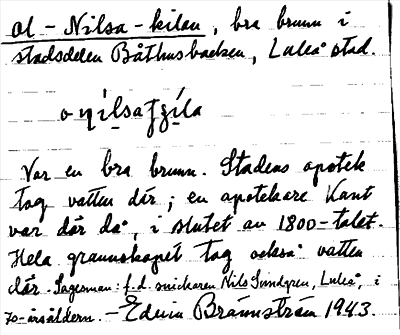 Ol-Nilsa-kilan, bra brunn i
stadsdelen Båthusbacken, Luleå stad.
Var en bra brunn. Stadens apotek
tog vatten där; en apotekare Kant
var där då, i slutet av 1800-talet.
Hela grannskapet tog också vatten
där. Sagesman: f.d. snickaren Nils Sundgren, Luleå, i
70-årsåldern. — Edvin Brännström 1943.